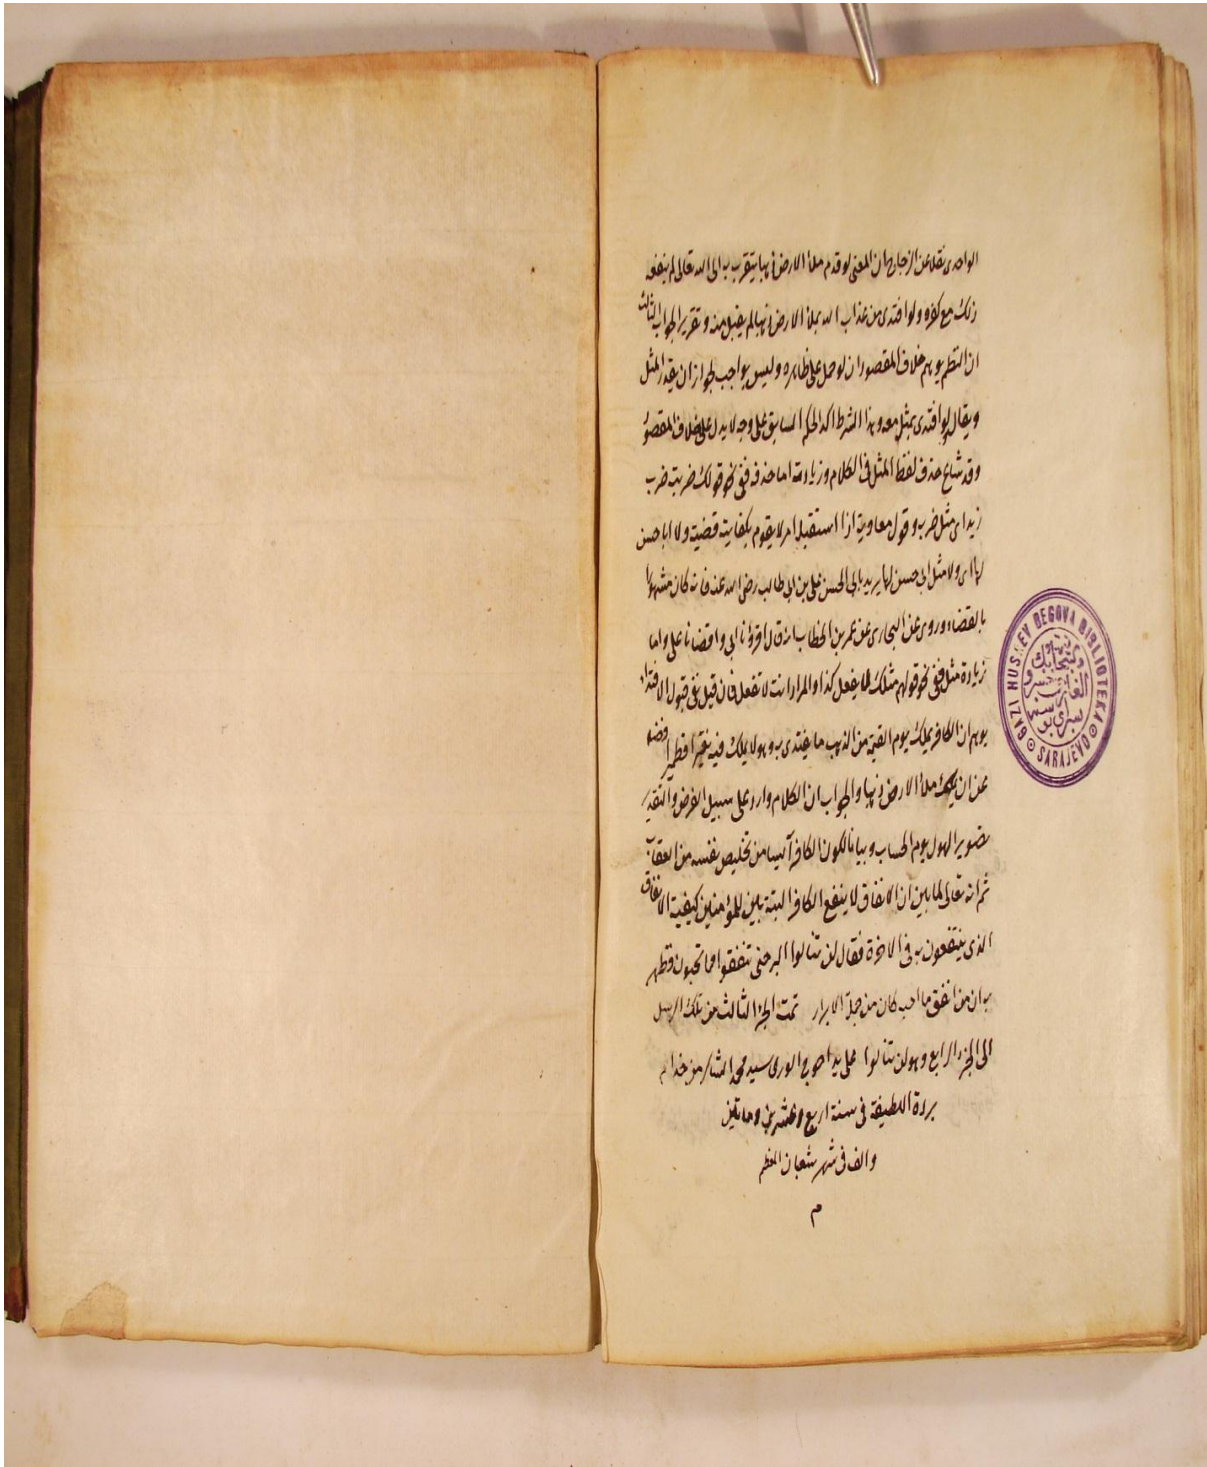 الواحدى نقلا عن الزجاج ان المعنى لو قدم ملأ الارض ذهبا يتقرب به الى الله تعالى لم ينفعه
ذلك مع كفره ولو افتدى من عذاب الله بملأ الارض ذهبا لم يقبل منه وتقرير الجواب الثالث
ان النظم يوهم خلاف المقصود ان لو حمل على ظاهره وليس بواجب لجواز ان يقدر المثل
ويقال ولو افتدى بمثله معه وهذا الشرط اكد الحكم السابق على وجه لا يدل على خلاف المقصود
وقد شاع حذف لفظ المثل فى الكلام وزيادته اما حذفه ففى نحو قولك ضربت ضرب
زيد اى مثل ضربه وقول معاوية اذا استقبله امر لا يقوم بكفايته قضية ولا ابا حسن
لها اى ولا مثل ابى حسن لها يريد بابى الحسن على بن ابى طالب رضى الله عنه فانه كان مشهورا
بالقضاء وروى عن البخارى عن عمر بن الخطاب انه قال اقرؤنا ابى واقضانا على واما
زيادة مثل ففى نحو قولهم مثلك لا يفعل كذا والمراد انت لا تفعل فان قيل نفى قبول الافتداء
يوهم ان الكافر يملك يوم القيمة من الذهب ما يفتدى به وهو لا يملك فيه نقيرا وقطميرا فضلا
عن ان يملك ملأ الارض ذهبا والجواب ان الكلام وارد على سبيل الفرض والتقدير
تصويرا لهول يوم الحساب وبيانا لكون الكافر آيسا من تخليص نفسه من العقاب
ثم انه تعالى لما بين ان الانفاق لا ينفع الكافر البتة بين للمؤمنين كيفية الانفاق
الذى ينتفعون به فى الاخرة فقال لن تنالوا البر حتى تنفقوا مما تحبون فظهر
به ان من انفق مما احب كان من جملة الابرار تمت الجزء الثالث من تلك الرسل
الى الجزء الرابع وهو لن تنالوا على يد احوج الورى سيد محمد من خدام
بردة اللطيفة فى سنة اربع وعشرين ومأتين
والف فى شهر شعبان المعظم
م
GAZI HUSREV BEGOVA BIBLIOTEKA
SARAJEVO